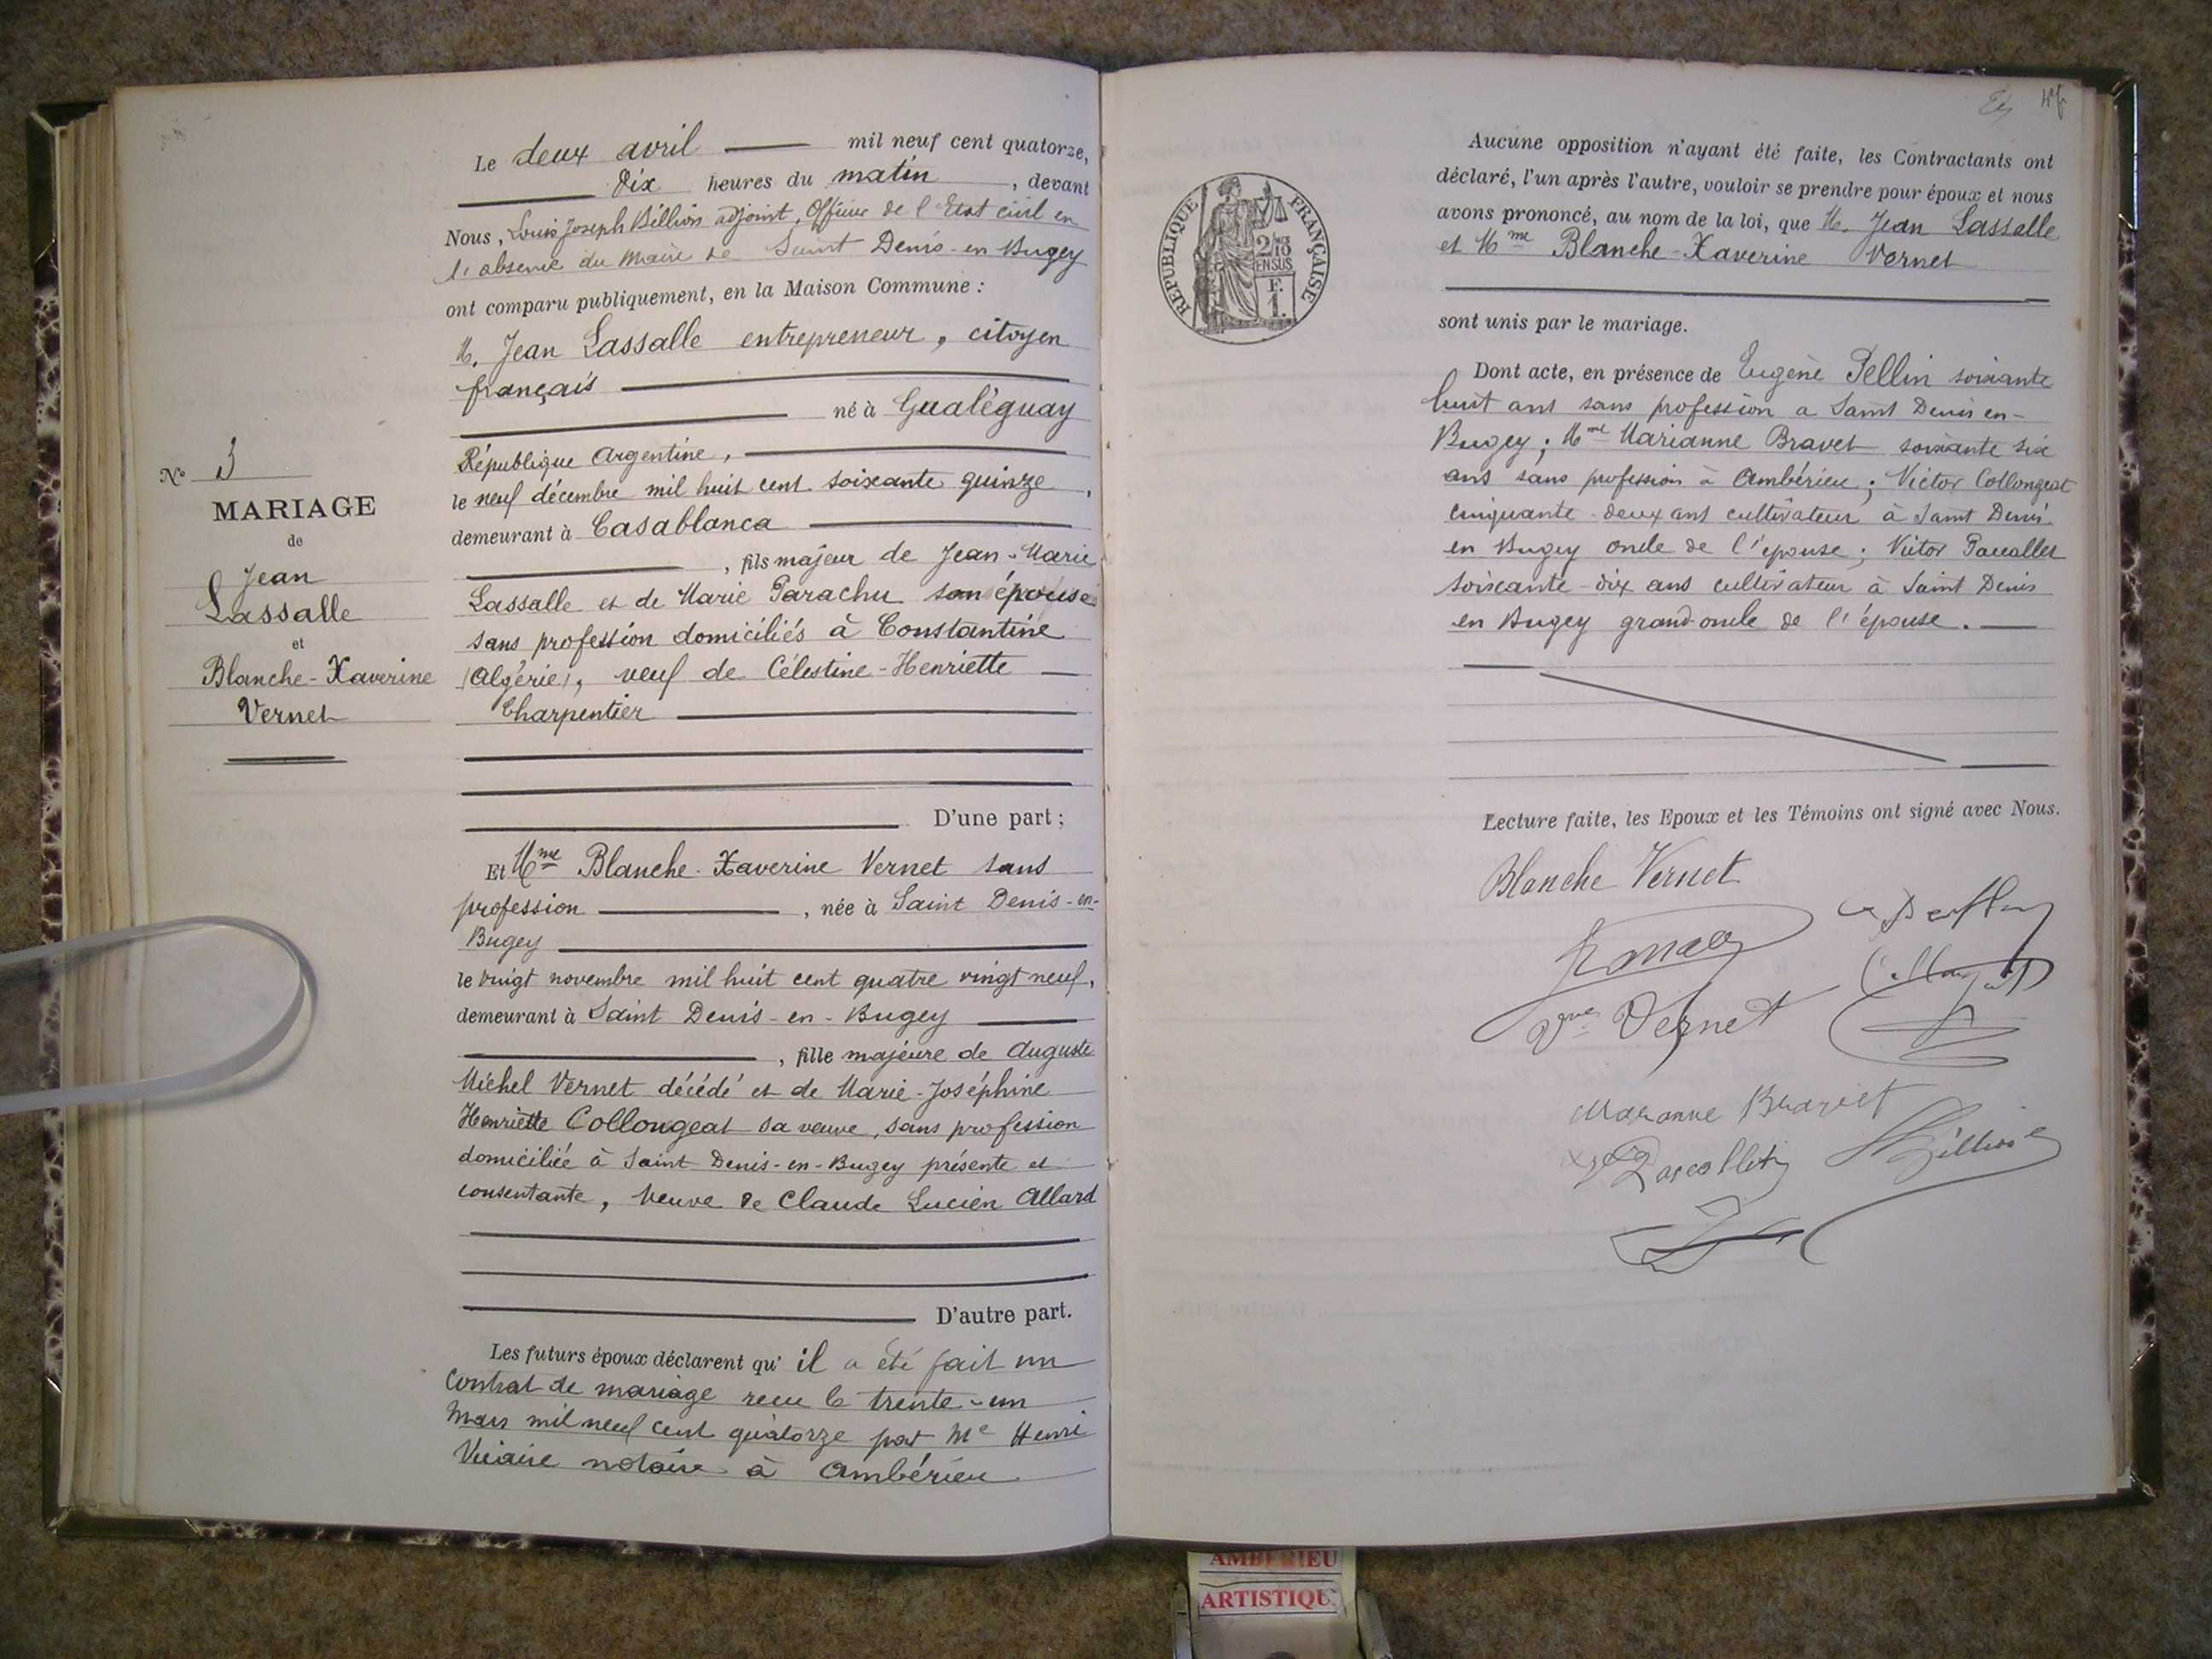 Le deux avril mil neuf cent quatorze,
Dix heures du matin, devant
Nous, Louis Joseph Billion adjoint, Officier de l'Etat civil en
l'absence du Maire de Saint Denis-en-Bugey
ont comparu publiquement, en la Maison Commune :
M. Jean Lassalle entrepreneur, citoyen
français
né à Gualéguay
République Argentine,
le neuf décembre mil huit cent soixante quinze,
demeurant à Casablanca
, fils majeur de Jean-Marie
Lassalle et de Marie Parachu son épouse
sans profession domiciliés à Constantine
(Algérie), veuf de Célestine-Henriette
Charpentier
D'une part ;
Et Mme Blanche-Xaverine Vernet sans
profession, née à Saint Denis-en-
Bugey
le vingt novembre mil huit cent quatre vingt neuf,
demeurant à Saint Denis-en-Bugey
, fille majeure de Auguste
Michel Vernet décédé et de Marie-Joséphine
Henriette Collongeat sa veuve, sans profession
domiciliée à Saint-Denis-en-Bugey présente et
consentante, veuve de Claude Lucien Allard
D'autre part.
Les futurs époux déclarent qu'il a été fait un
contrat de mariage recu le trente-un
Mars mil neuf cent quatorze par Me Henri
Vicaire notaire à Ambérieu
No 3
MARIAGE
de
Jean
Lassalle
et
Blanche-Xaverine
Vernet
RÉPUBLIQUE FRANÇAISE
2/10
EN SUS
F.
1.
Aucune opposition n'ayant été faite, les Contractants ont
déclaré, l'un après l'autre, vouloir se prendre pour époux et nous
avons prononcé, au nom de la loi, que M. Jean Lassalle
et Mme Blanche-Xaverine Vernet
sont unis par le mariage.
Dont acte, en présence de Eugène Pellin soixante
huit ans sans profession a Saint Denis en-
Bugey ; Mme Marianne Bravet soixante six
ans sans profession à Ambérieu ; Victor Collongeat
cinquante-deux ans cultivateur à Saint Denis
en Bugey oncle de l'épouse ; Victor Pascallet
soixante-dix ans cultivateur à Saint Denis
en Bugey grand-oncle de l'épouse.
Lecture faite, les Epoux et les Témoins ont signé avec Nous.
Blanche Vernet
Collongeat
Vve Vernet
Marianne Bravet
Pascallet
Billion
AMBERIEU
ARTISTIQU